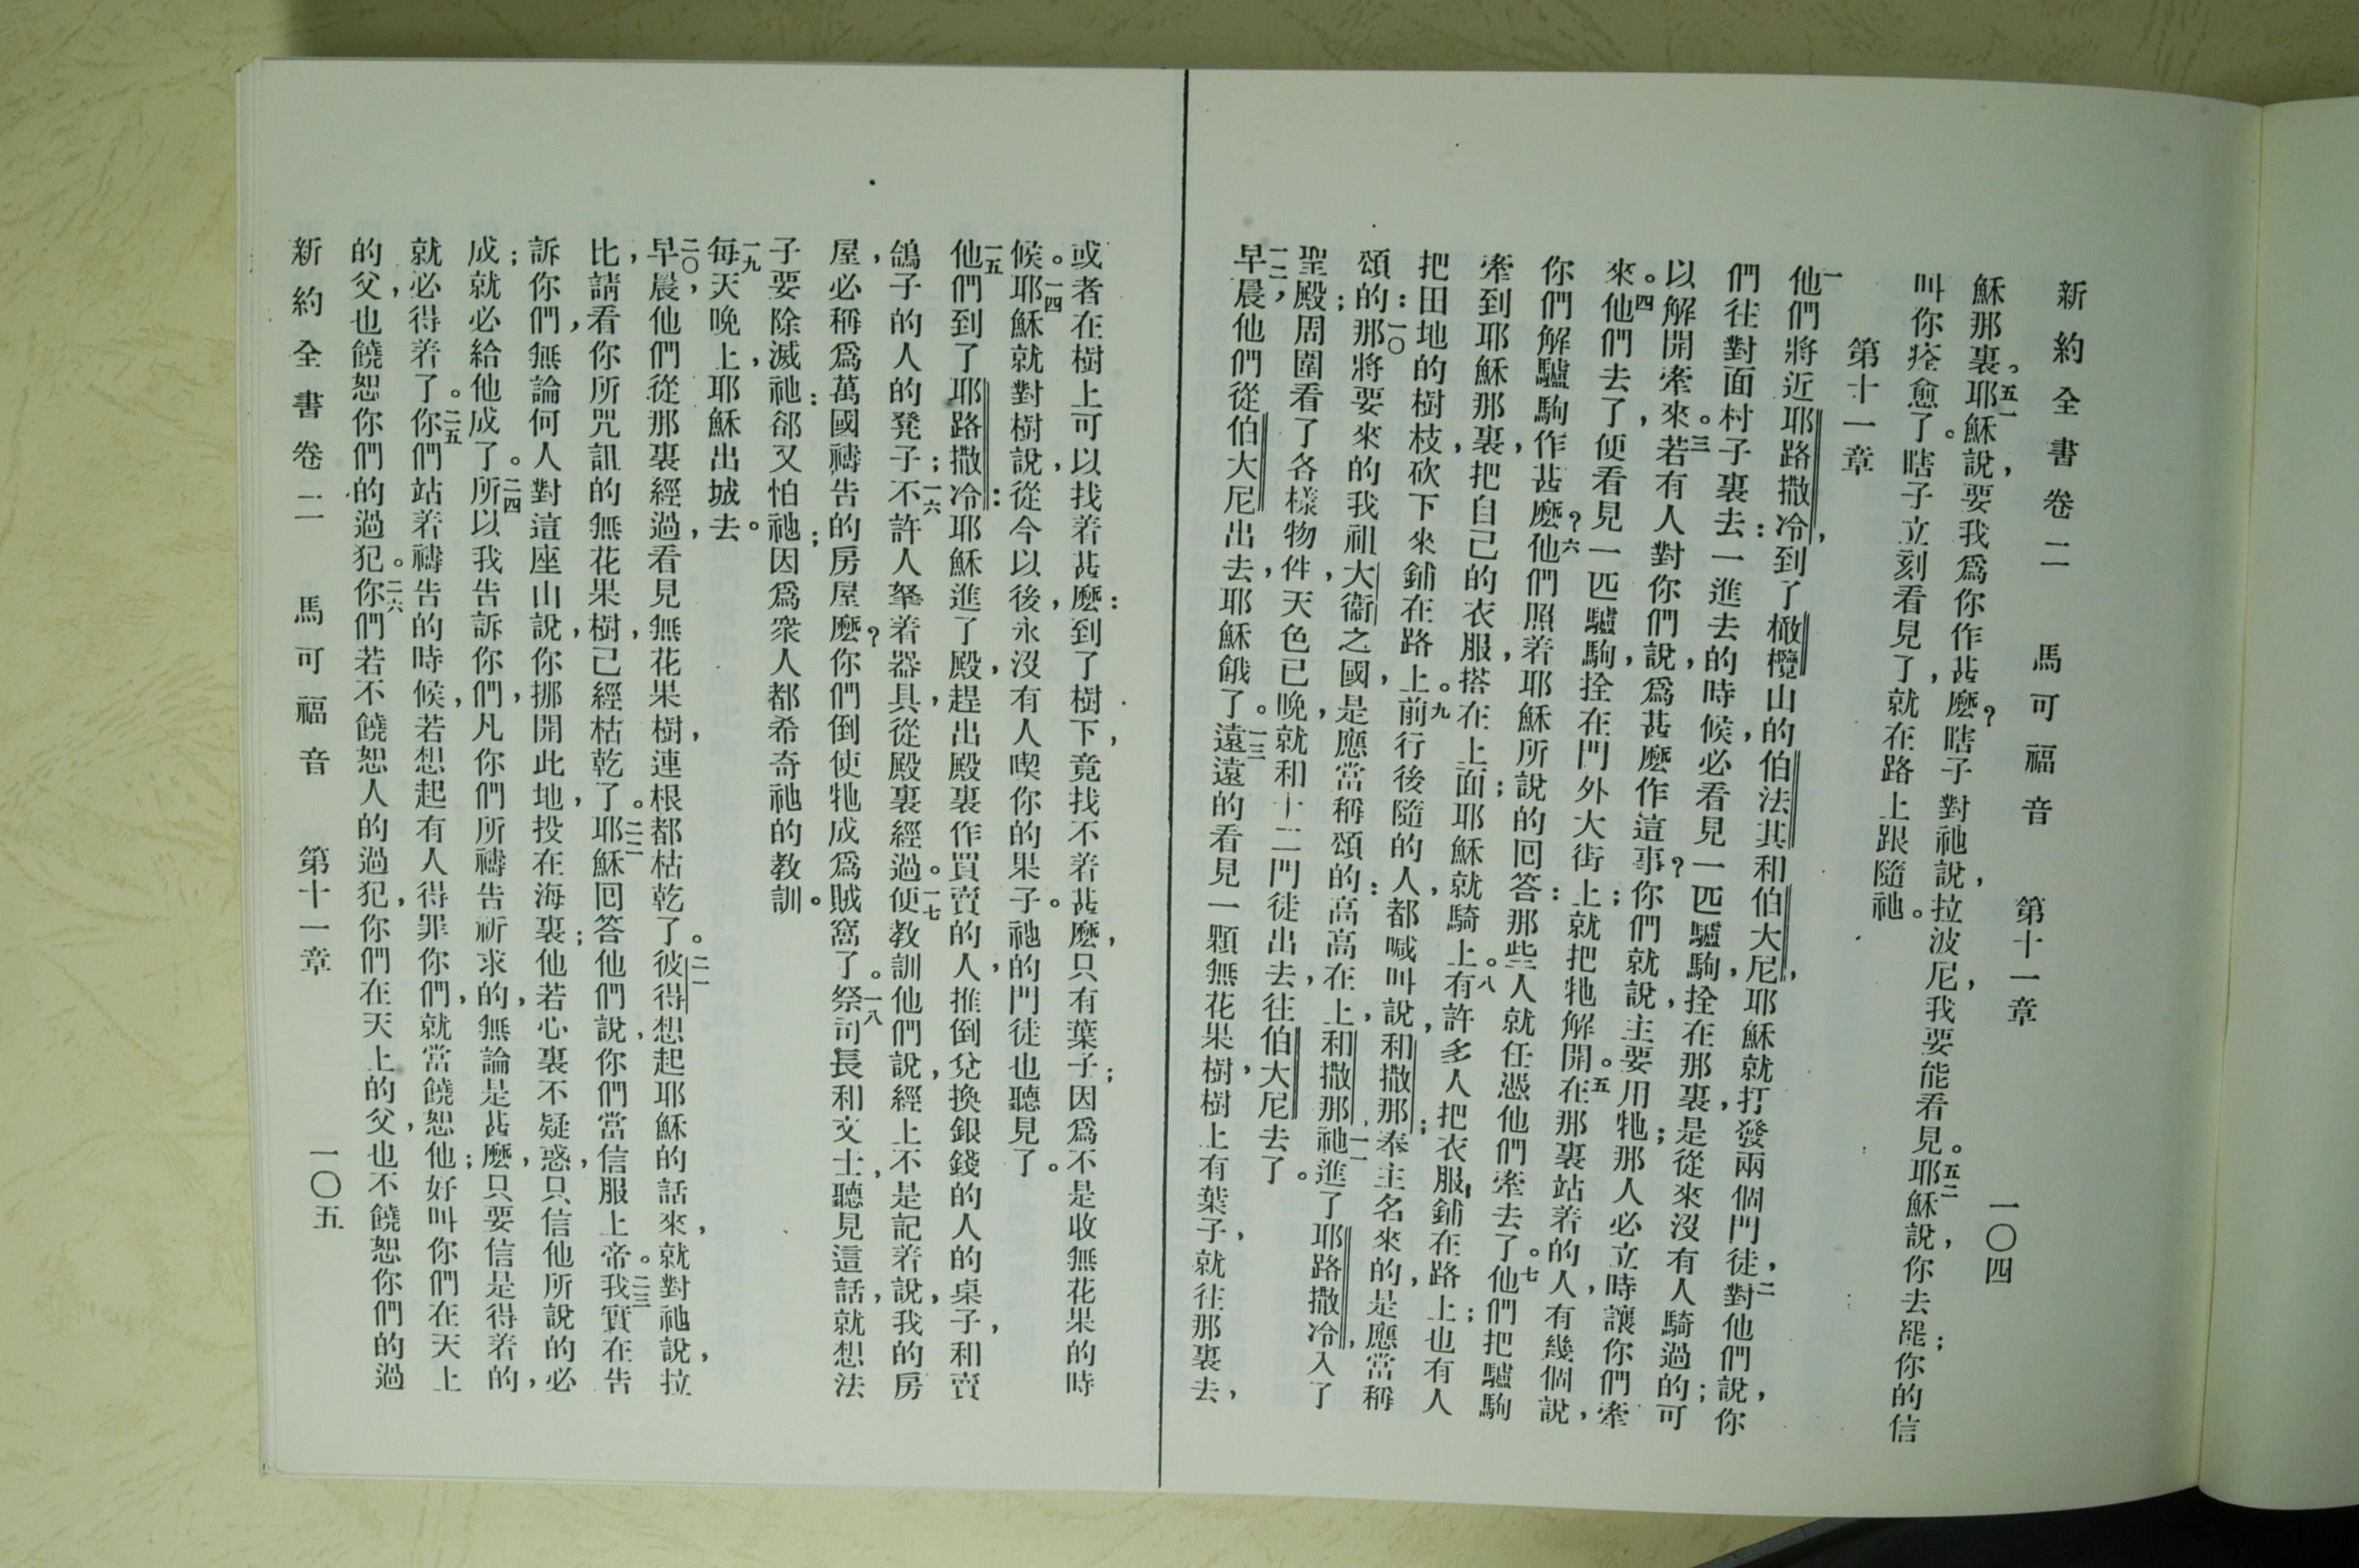 新約全書卷二　馬可福音　第十一章　一〇四
穌那裏。五一耶穌說、要我爲你作甚麼？瞎子對祂說、拉波尼、我要能看見。五二耶穌說、你去罷；你的信
叫你痊愈了。瞎子立刻看見了、就在路上跟隨祂。
第十一章
一他們將近耶路撒冷、到了橄欖山的伯法其和伯大尼、耶穌就打發兩個門徒、二對他們說、你
們往對面村子裏去：一進去的時候、必看見一匹驢駒、拴在那裏、是從來沒有人騎過的；可
以解開牽來。三若有人對你們說、爲甚麼作這事？你們就說、主要用牠；那人必立時讓你們牽
來。四他們去了、便看見一匹驢駒、拴在門外大街上；就把牠解開。五在那裏站着的人、有幾個說、
你們解驢駒作甚麼？六他們照着耶穌所說的回答：那些人就任憑他們牽去了。七他們把驢駒
牽到耶穌那裏、把自己的衣服、搭在上面；耶穌就騎上。八有許多人把衣服、鋪在路上；也有人
把田地的樹枝、砍下來鋪在路上。九前行後隨的人、都喊叫說、和撒那；奉主名來的、是應當稱
頌的：一〇那將要來的我祖大衞之國、是應當稱頌的：高高在上、和撒那一一祂進了耶路撒冷、入了
聖殿；周圍看了各樣物件、天色已晚、就和十二門徒出去、往伯大尼去了。
一二早晨、他們從伯大尼出去、耶穌餓了。一三遠遠的看見一顆無花果樹、樹上有葉子、就往那裏去、
或者在樹上可以找着甚麼：到了樹下、竟找不着甚麼、只有葉子；因爲不是收無花果的時
候。一四耶穌就對樹說、從今以後、永沒有人喫你的果子。祂的門徒也聽見了。
一五他們到了耶路撒冷：耶穌進了殿、趕出殿裏作買賣的人、推倒兌換銀錢的人的桌子、和賣
鴿子的人的凳子；一六不許人拏着器具、從殿裏經過。一七便教訓他們說、經上不是記着說、我的房
屋、必稱爲萬國禱告的房屋麼？你們倒使牠成爲賊窩了。一八祭司長和文士、聽見這話、就想法
子要除滅祂：郤又怕祂；因爲衆人都希奇祂的教訓。
一九每天晚上、耶穌出城去。
二〇早晨、他們從那裏經過、看見無花果樹、連根都枯乾了。二一彼得想起耶穌的話來、就對祂說、拉
比、請看你所咒詛的無花果樹、已經枯乾了。二二耶穌回答他們說、你們當信服上帝。二三我實在告
訴你們、無論何人對這座山說、你挪開此地、投在海裏；他若心裏不疑惑、只信他所說的必
成；就必給他成了。二四所以我告訴你們、凡你們所禱告祈求的、無論是甚麼、只要信是得着的、
就必得着了。二五你們站着禱告的時候、若想起有人得罪你們、就當饒恕他；好叫你們在天上
的父、也饒恕你們的過犯。二六你們若不饒恕人的過犯、你們在天上的父、也不饒恕你們的過
新約全書卷二　馬可福音　第十一章　一〇五